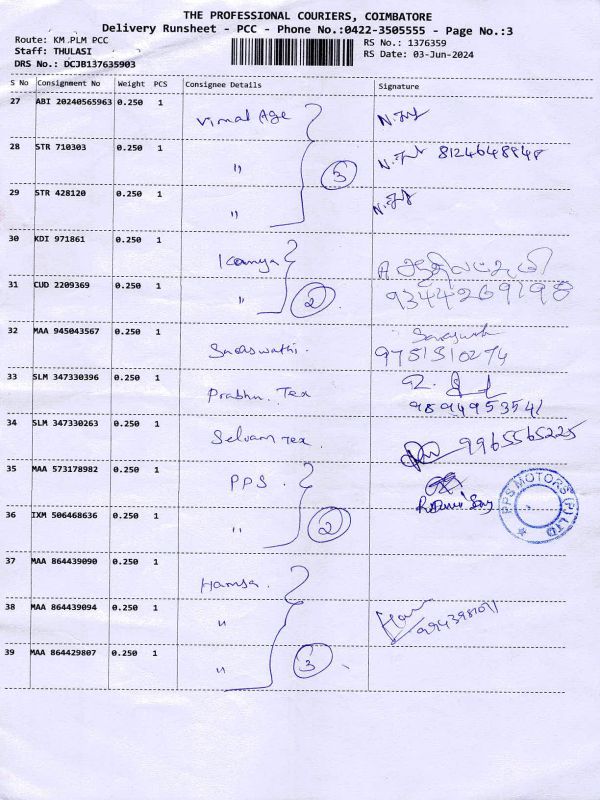 THE PROFESSIONAL COURIERS, COIMBATORE
Delivery Runsheet - PCC - Phone No.:0422-3505555 - Page No.:3
Route: KM.PLM PCC
RS No.: 1376359
Staff: THULASI
RS Date: 03-Jun-2024
DRS No.: DCJB137635903
S No Consignment No Weight PCS Consignee Details Signature
27 ABI 20240565963 0.250 1 Vimal Age
28 STR 710303 0.250 1 " 3
29 STR 428120 0.250 1 "
30 KDI 971861 0.250 1 Kanya
31 CUD 2209369 0.250 1 " 2 9344269198
32 MAA 945043567 0.250 1 Saraswathi. 9751510274
33 SLM 347330396 0.250 1 Prabhu. Tex 9894953541
34 SLM 347330263 0.250 1 Selvam Tex. 9965565225
35 MAA 573178982 0.250 1 PPS
PPS MOTORS (P) LTD
36 IXM 506468636 0.250 1 " 2
37 MAA 864439090 0.250 1 Hamsa.
38 MAA 864439094 0.250 1 "
39 MAA 864429807 0.250 1 " 3